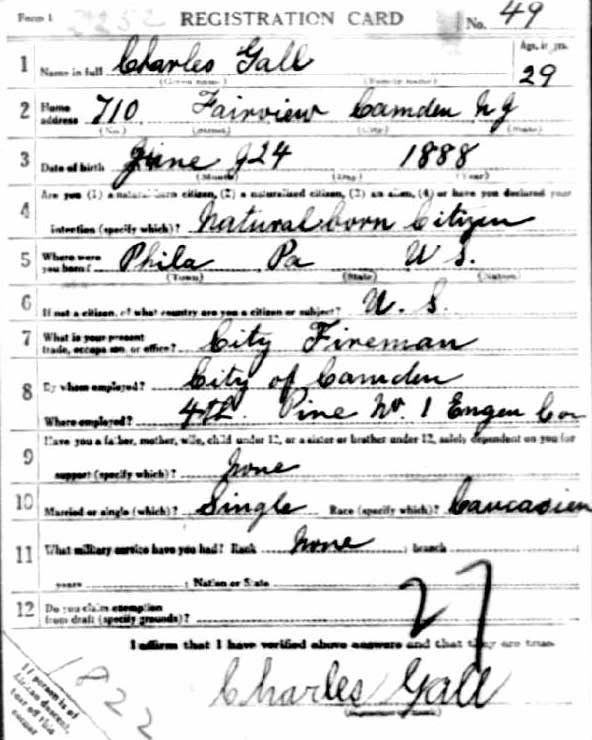 Form 1 REGISTRATION CARD No. 49
1 Name in full Charles Gall Age, in yrs. 29
(Given name) (Family name)
2 Home address 710 Fairview Camden N J
(No.) (Street) (City) (State)
3 Date of birth June 24 1888
(Month) (Day) (Year)
4 Are you (1) a natural born citizen, (2) a naturalized citizen, (3) an alien, (4) or have you declared your
intention (specify which)? Natural born Citizen
5 Where were you born? Phila Pa U S.
(Town) (State) (Nation)
6 If not a citizen, of what country are you a citizen or subject? U. S.
7 What is your present trade, occupation, or office? City Fireman
8 By whom employed? City of Camden
Where employed? 4th. Pine No. 1 Engen Co
9 Have you a father, mother, wife, child under 12, or a sister or brother under 12, solely dependent on you for
support (specify which)? None
10 Married or single (which)? Single Race (specify which)? Caucasien
11 What military service have you had? Rank None ; branch
years ; Nation or State
12 Do you claim exemption from draft (specify grounds)?
27
I affirm that I have verified above answers and that they are true.
Charles Gall
If person is of African descent, tear off this corner
1822